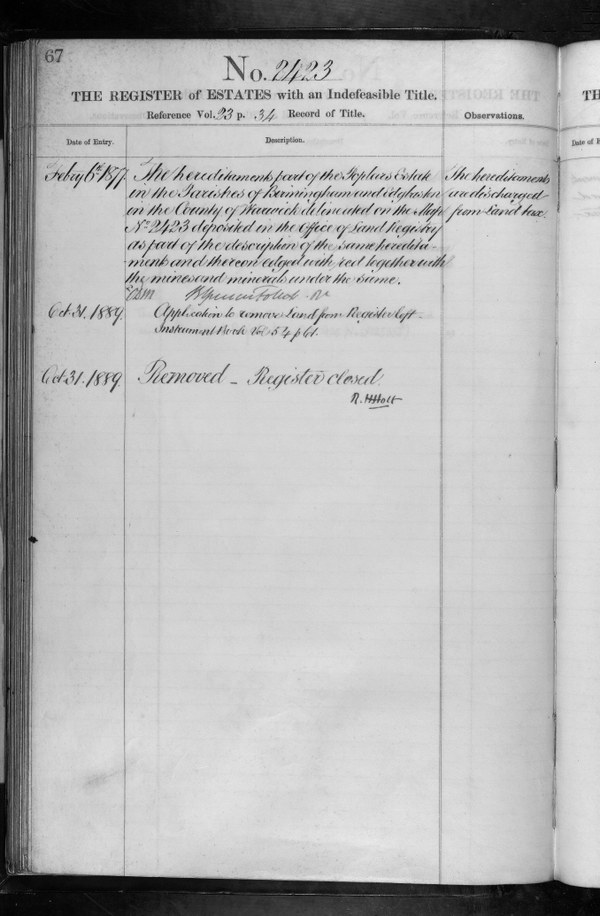 67
No. 2423
THE REGISTER of ESTATES with an Indefeasible Title.
Reference Vol. 23 p. 34 Record of Title.
Observations.
Date of Entry.
Description.
Febry 6th 1877
The hereditaments part of the Estate
in the Parishes of Birmingham and Edgbaston
in the County of Warwick delineated on the Map
No 2423 deposited in the Office of Land Registry
as part of the description of the same heredita-
ments and thereon edged with red together with
the mines and minerals under the same.
The hereditaments
are discharged
from Land tax.
Oct. 31. 1889
Application to remove Land from Register left
Instrument Book Vol. 54 p 61.
Oct. 31. 1889
Removed - Register closed.
R. H Holt
TH
Date of E